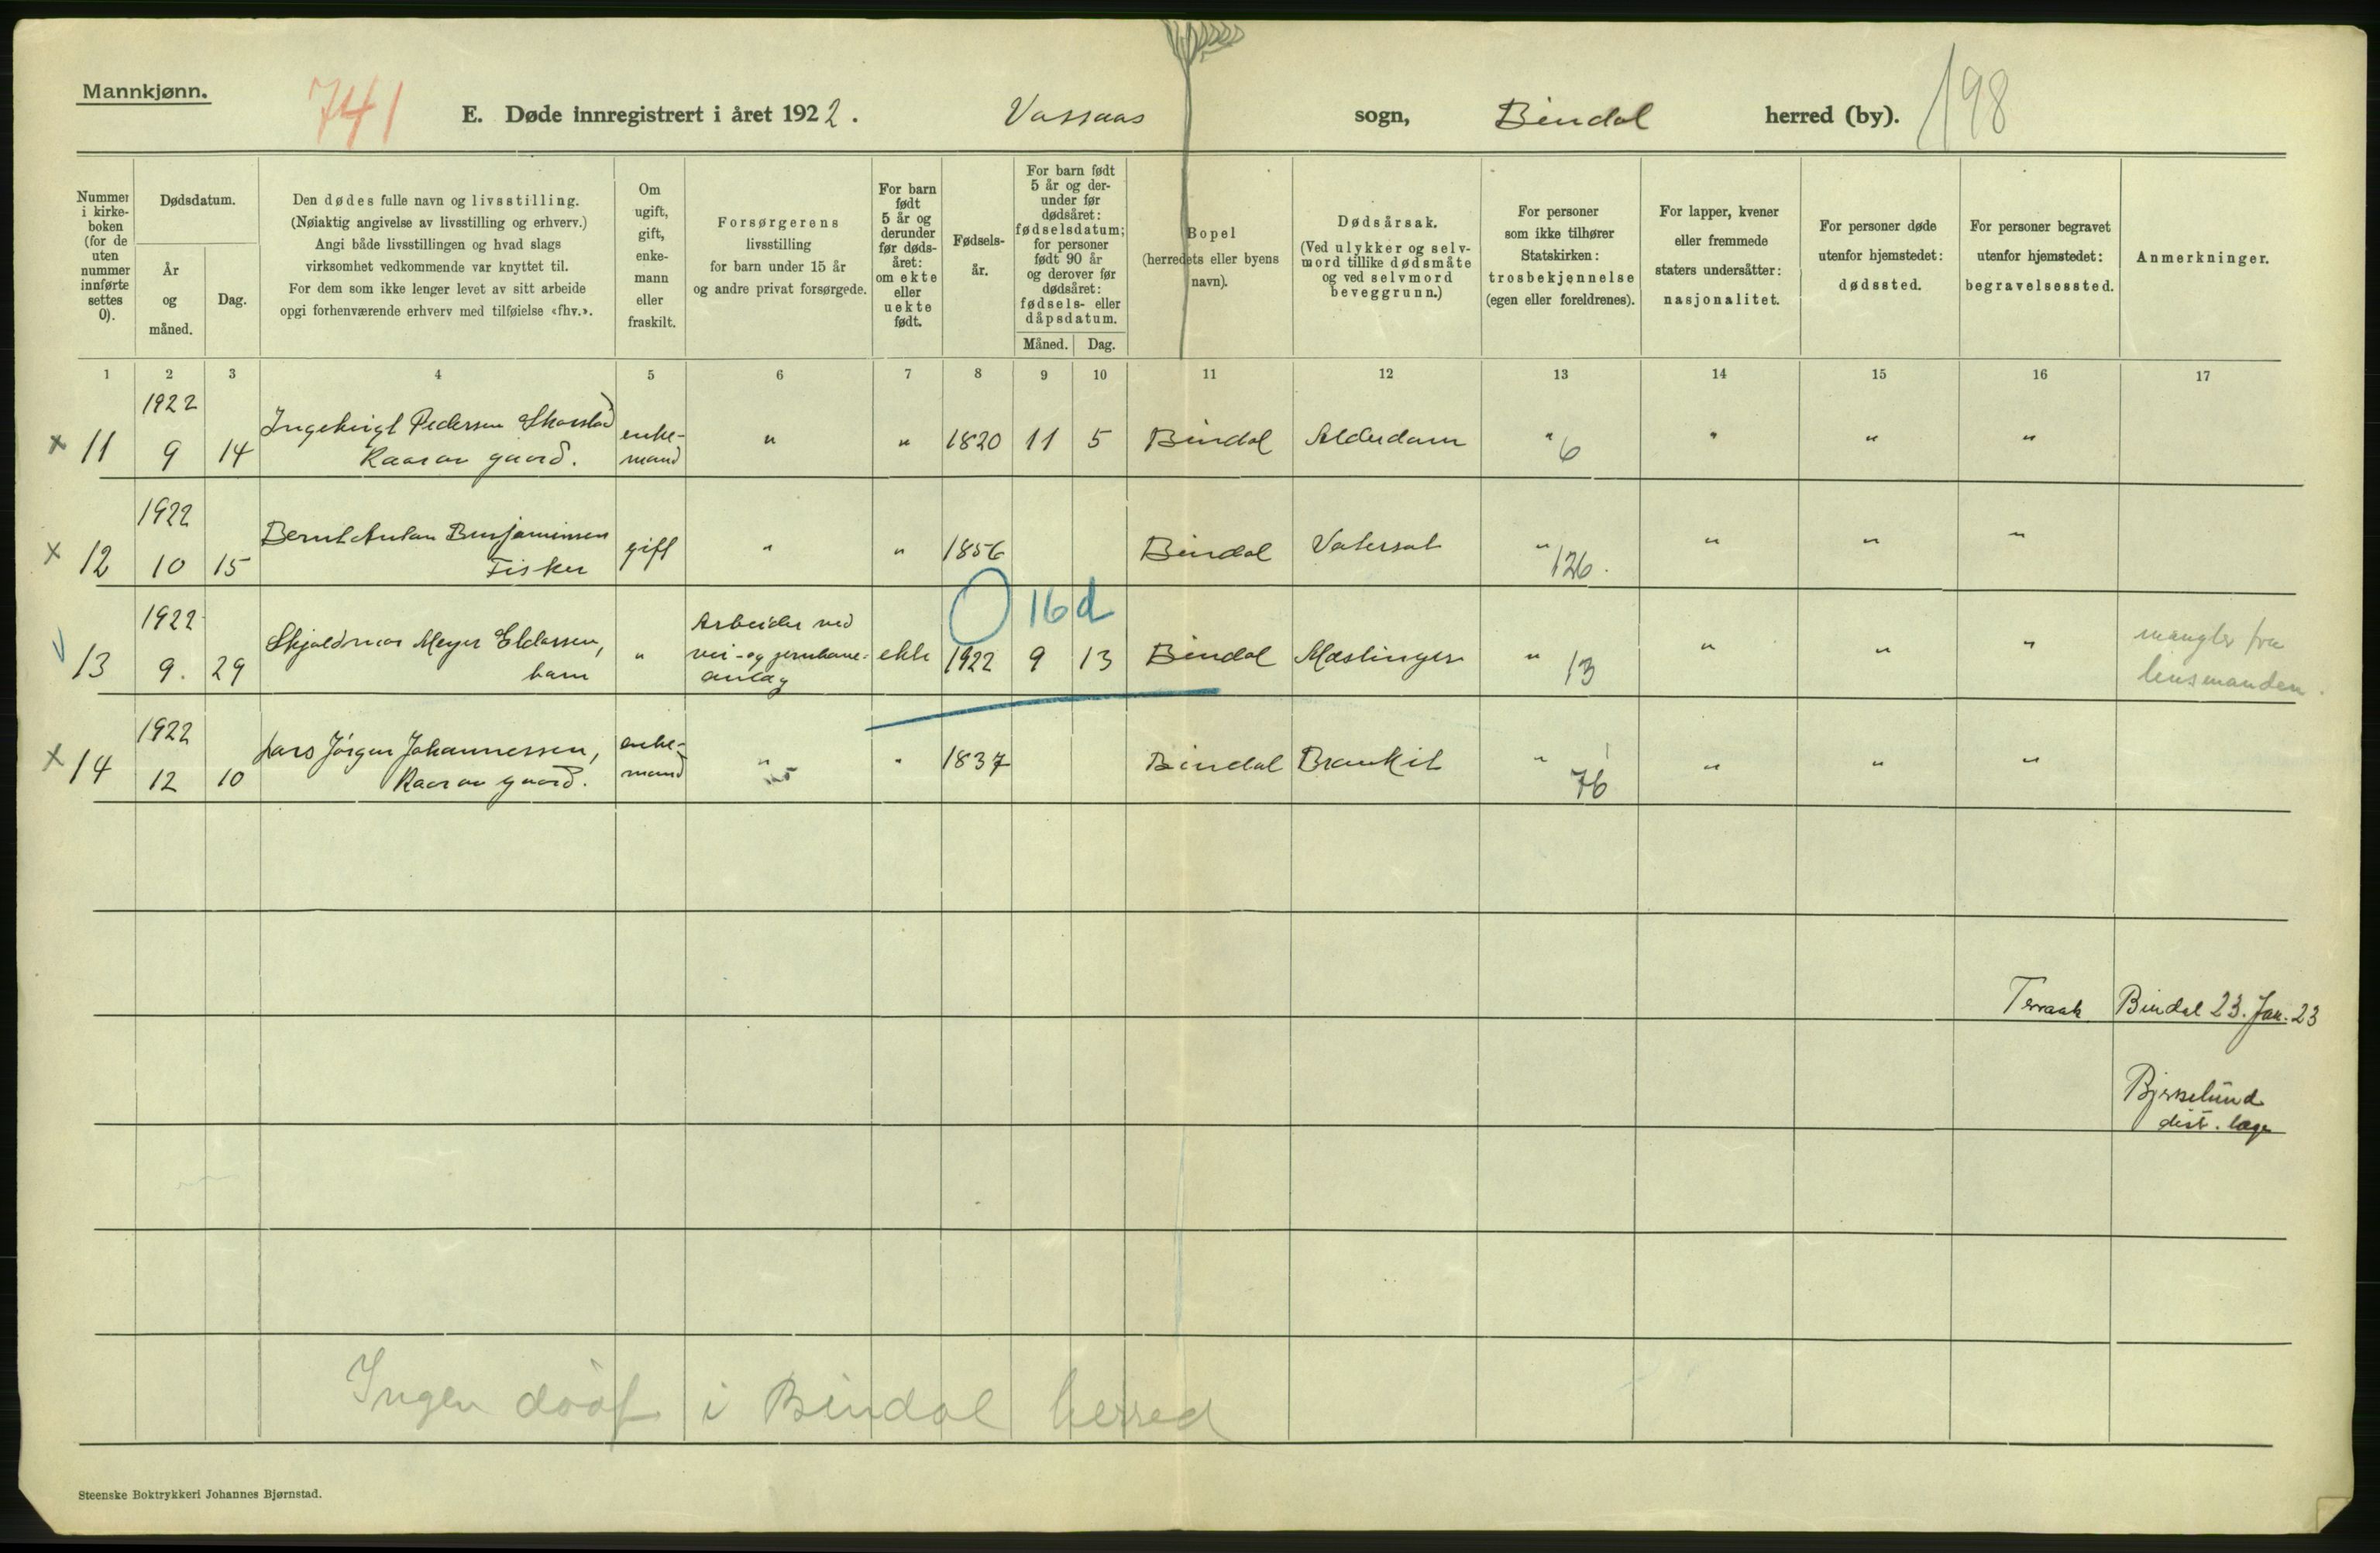 Mannkjønn.
741
E. Døde innregistrert i året 1922.
Vassaas sogn, Bindal herred (by).
198
Nummer i kirkeboken (for de uten nummer innførte settes 0).
Dødsdatum.
År og måned.
Dag.
Den dødes fulle navn og livsstilling.
(Nøiaktig angivelse av livsstilling og erhverv.)
Angi både livsstillingen og hvad slags
virksomhet vedkommende var knyttet til.
For dem som ikke lenger levet av sitt arbeide
opgi forhenværende erhverv med tilføielse «fhv.».
Om ugift, gift, enkemann eller fraskilt.
Forsørgerens
livsstilling
for barn under 15 år
og andre privat forsørgede.
For barn født 5 år og derunder før dødsåret: om ekte eller uekte født.
Fødselsår.
For barn født 5 år og derunder før dødsåret: fødselsdatum; for personer født 90 år og derover før dødsåret: fødsels- eller dåpsdatum.
Måned. Dag.
Bopel
(herredets eller byens
navn).
Dødsårsak.
(Ved ulykker og selvmord tillike dødsmåte og ved selvmord beveggrunn.)
For personer
som ikke tilhører
Statskirken:
trosbekjennelse
(egen eller foreldrenes).
For lapper, kvener
eller fremmede
staters undersåtter:
nasjonalitet.
For personer døde
utenfor hjemstedet:
dødssted.
For personer begravet
utenfor hjemstedet:
begravelsessted.
Anmerkninger.
1 2 3 4 5 6 7 8 9 10 11 12 13 14 15 16 17
1922
x 11 9 14 Pedersen enke-mand " " 1820 11 5 Bindal Alderdom " 6 " " "
Kaar av gaard.
1922
x 12 10 15 Bernt Anton Benjaminsen gift " " 1856 Bindal Vatersot " 126. " " "
Fisker
0 16 d
1922
13 9. 29 Skjaldmar Meyer Eldassen, barn " Arbeider ved vei- og jernbane-anlæg ekte 1922 9 13 Bindal Mæslinger " 13 " " " mangler fra lensmanden.
1922
x 14 12 10 Lars Jørgen Johannessen, enke-mand " " 1837 Bindal Bronkit " 76 " " "
Kaar av gaard.
Terraak Bindal 23. Jan. 23
dist. læge
Ingen døde i Bindal herred
Steenske Boktrykkeri Johannes Bjørnstad.